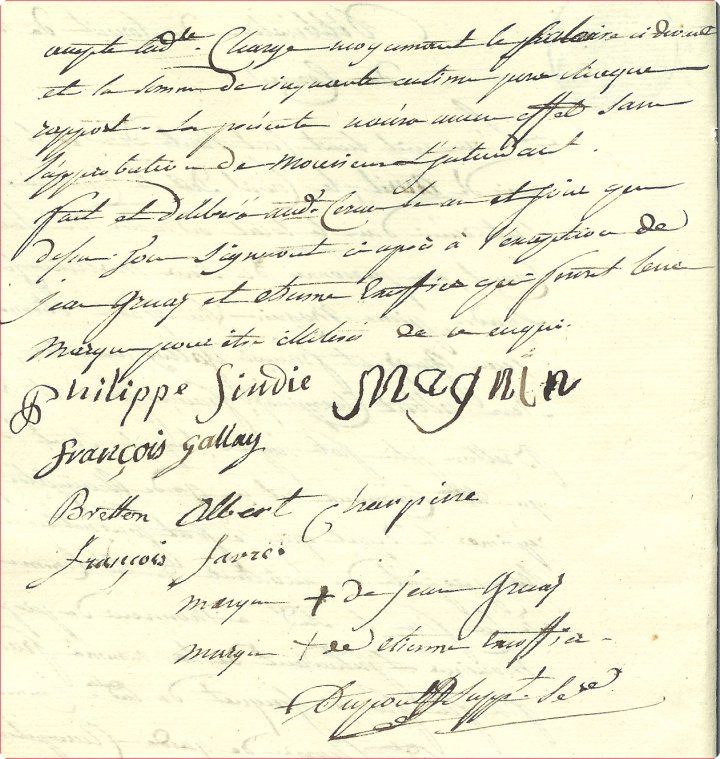 compte lad.te Charge moyennant le salaire ci dessus
et la somme de cinquante centimes pour chaque
rapport. La présente n'aura aucun effet sans
l'approbation de Monsieur l'intendant.
fait et délibéré aud.t Cercu le an et jour que
dessus. Tous signeront ci après à l'exception de
jean Gruaz et etienne qui feront leur
Marque pour être illitérés de ce enquis.
Philippe Sindic Magnin
François Gallay
Bretton Albert Charpine
françois favre
marque + de jean Gruaz
marque + de etienne
Dupont Supp.t Sre